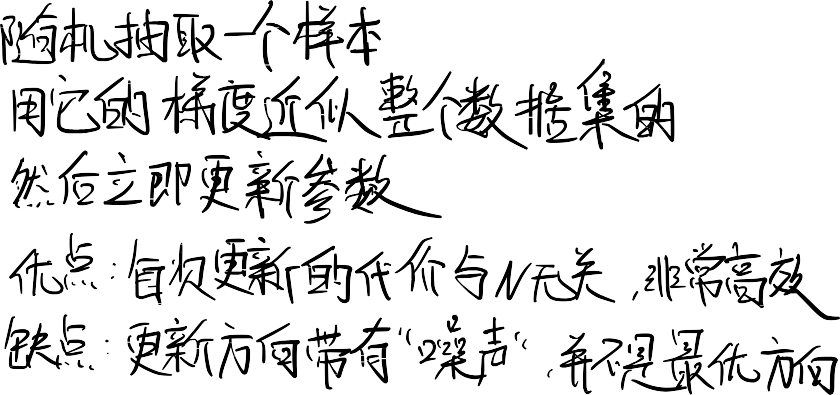 随机抽取一个样本
用它的梯度近似整个数据集的
然后立即更新参数
优点:每次更新的代价与N无关,非常高效
缺点:更新方向带有“噪声“,并不是最优方向